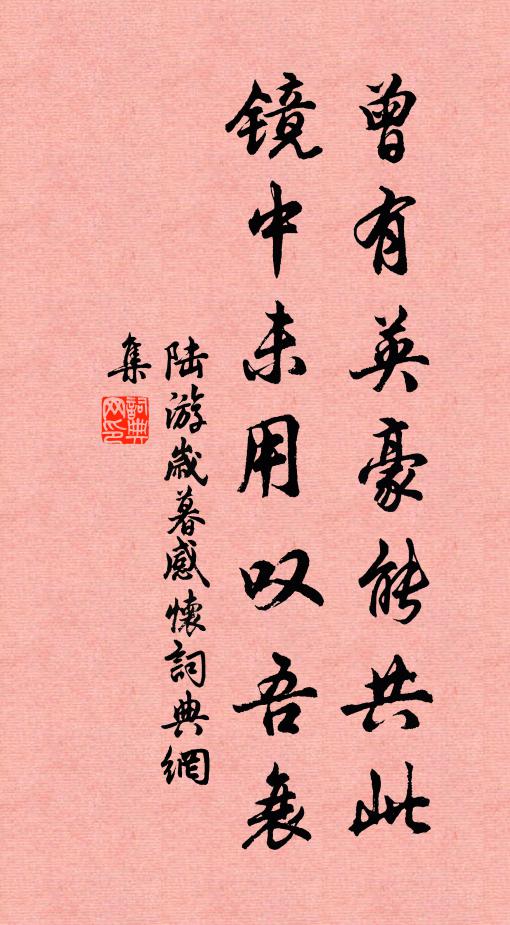 曾有英豪能共此
镜中未用叹吾衰
陆游歲暮感懷詞典網
集
詞典
网印